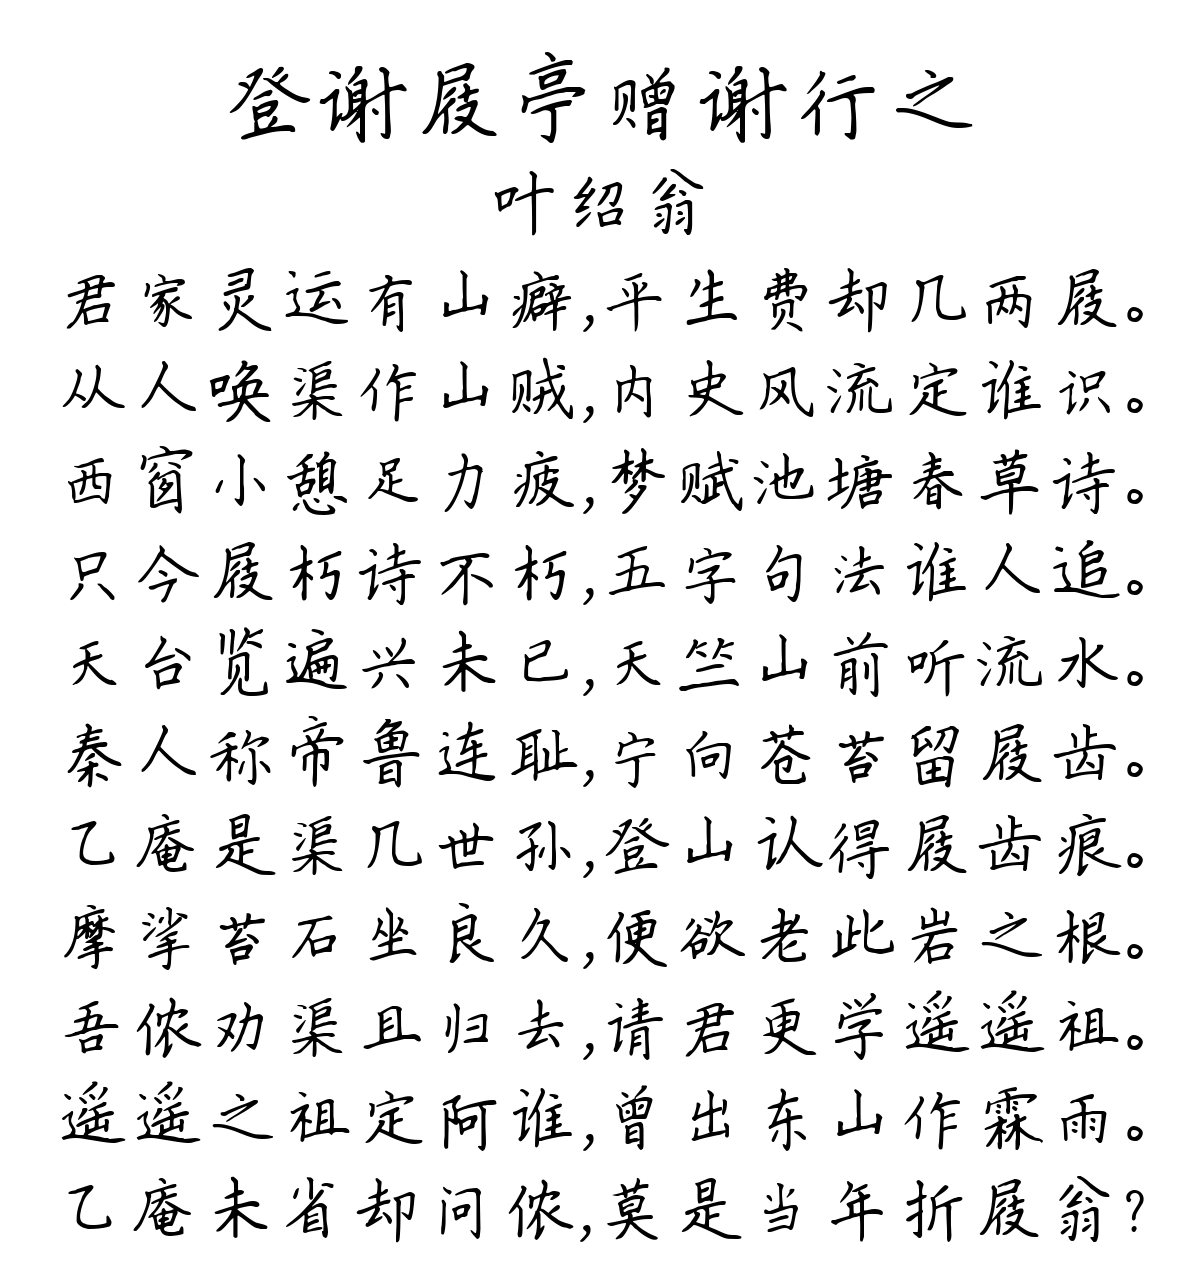 登谢屐亭赠谢行之
叶绍翁
君家灵运有山癖,平生费却几两屐。
从人唤渠作山贼,内史风流定谁识。
西窗小憩足力疲,梦赋池塘春草诗。
只今屐朽诗不朽,五字句法谁人追。
天台览遍兴未已,天竺山前听流水。
秦人称帝鲁连耻,宁向苍苔留屐齿。
乙庵是渠几世孙,登山认得屐齿痕。
摩挲苔石坐良久,便欲老此岩之根。
吾侬劝渠且归去,请君更学遥遥祖。
遥遥之祖定阿谁,曾出东山作霖雨。
乙庵未省却问侬,莫是当年折屐翁?